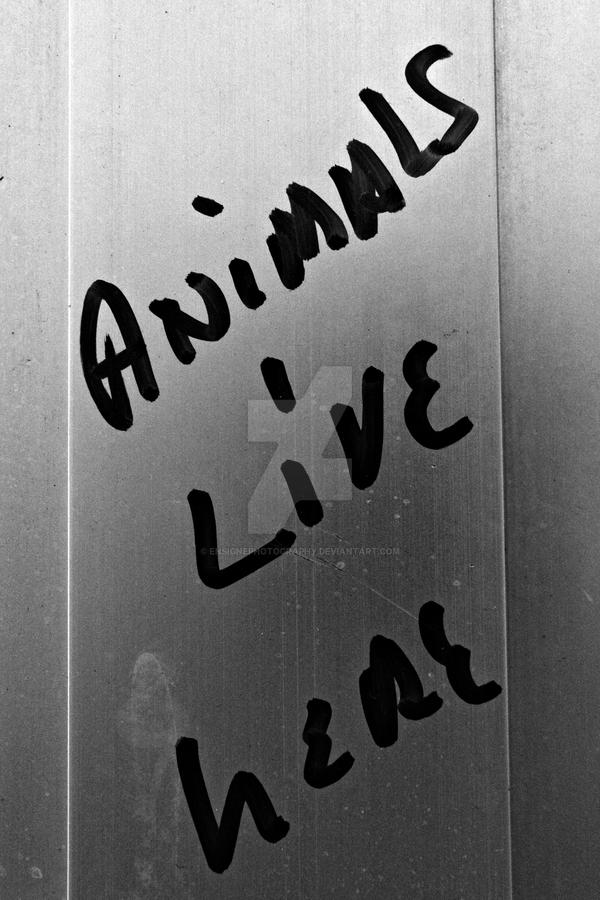 ANiMALS
LiVE
hERE
© ENSIGNEPHOTOGRAPHY.DEVIANTART.COM